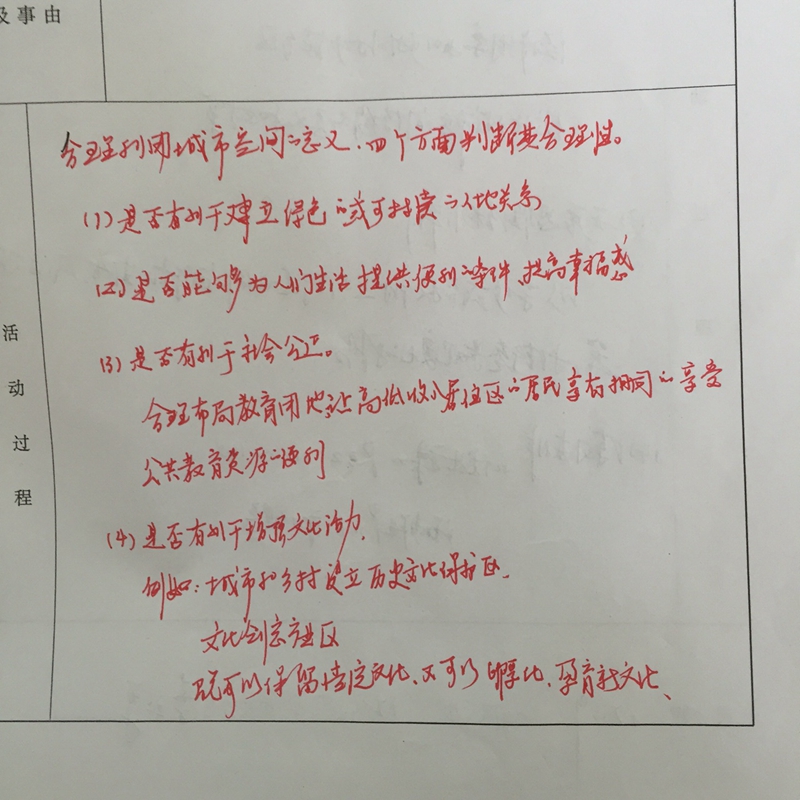 及事由
合理利用城市空间的意义.四个方面判断其合理性。
(1)是否有利于建立绿色的或可持续的人地关系
(2)是否能够为人们生活提供便利的条件、提高幸福感
(3)是否有利于社会公正。
合理布局教育用地,让高低收入居住区的居民享有相同的享受
公共教育资源的便利
(4)是否有利于增强文化活力.
例如:城市和乡村设立历史文化保护区、
文化创意产业区
既可以保留传统文化、又可以孵化、孕育新文化、
活
动
过
程